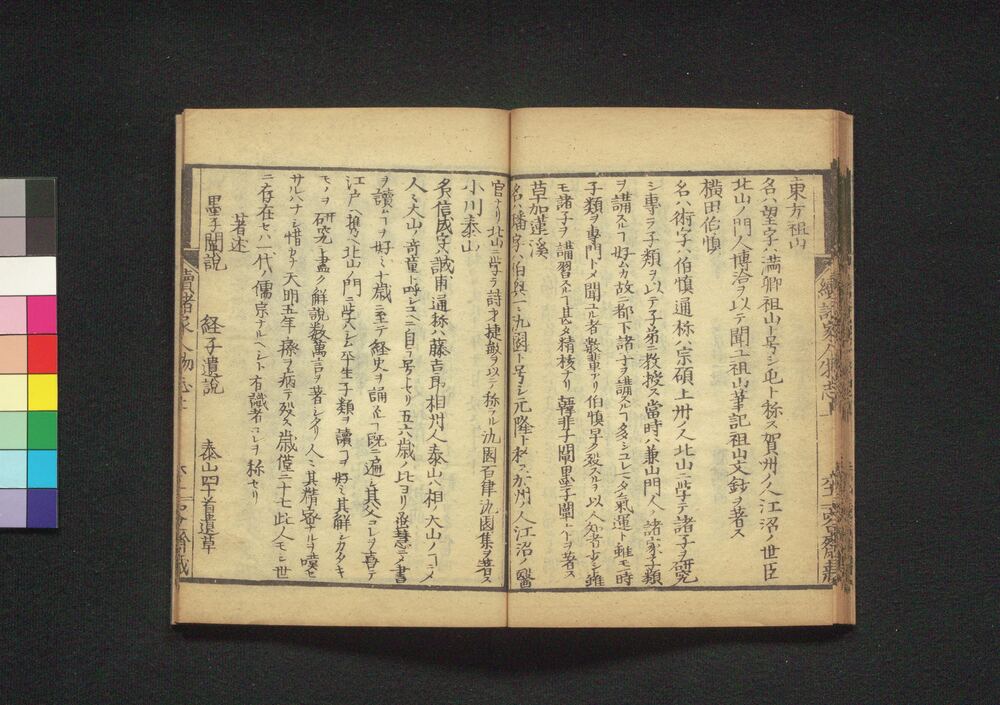 東方祖山
名ハ望字ハ満卿祖山ト号シ屯ト称ス賀州ノ人江沼ノ世臣
北山ノ門人博洽ヲ以テ聞ユ祖山筆記祖山文鈔ヲ著ス
横田伯慎
名ハ術字ハ伯慎通称ハ宗碩上州ノ人北山ニ学テ諸子ヲ研究
シ専ラ子類ヲ以テ子弟ニ教授ス當時ハ兼山門人ハ諸家子類
ヲ講スルヿ好ムカ故ニ都下諸子ヲ講スルヿ多シコレニタ気運ト雖モ一時
子類ヲ専門トメ聞ユル者数輩ナリ伯慎早ク歿スルヲ以人知者少シ雖
モ諸子ヲ講習スルヿ甚タ精核ナリ韓非子闡墨子闡トヲ著ス
草加蓮溪
名ハ璠字ハ伯輿一ニ氿園ト号シ元隆ト称ス加州ノ人江沼ノ醫
官ナリ北山ニ学ヲ詩才捷敏ヲ以テ称ラル氿園百律氿園集ヲ著ス
小川泰山
名ハ信成字ハ誠甫通称ハ藤吉郎相州人泰山ハ相ノ大山ノコニメ
人ミナ大山ノ奇童ト呼シユヘニ自ラ号トセリ五六歳ノ比ヨリ聡慧ニメ書
ヲ讀ムヿヲ好ミ十歳ニ至テ経史ヲ誦スルヿ既ニ遍シ其父コレヲ喜テ
江戸ヘ携ヘ北山ノ門ニ学ハシム平生子類ヲ讀コヲ好ミ其解シカタキ
モノヲ研究シ盡ク解説数萬言ヲ著シタリ人ミナ其精密ナルヲ嘆セ
サルハナシ惜カナ天明五年瘵ヲ病テ歿ス歳僅二十七此人モシ世
ニ存在セハ一代ノ儒宗ナルヘシト有識者コレヲ称セリ
著述
墨子闡説　経子遺説　泰山四十首遺草
續諸家人物志上